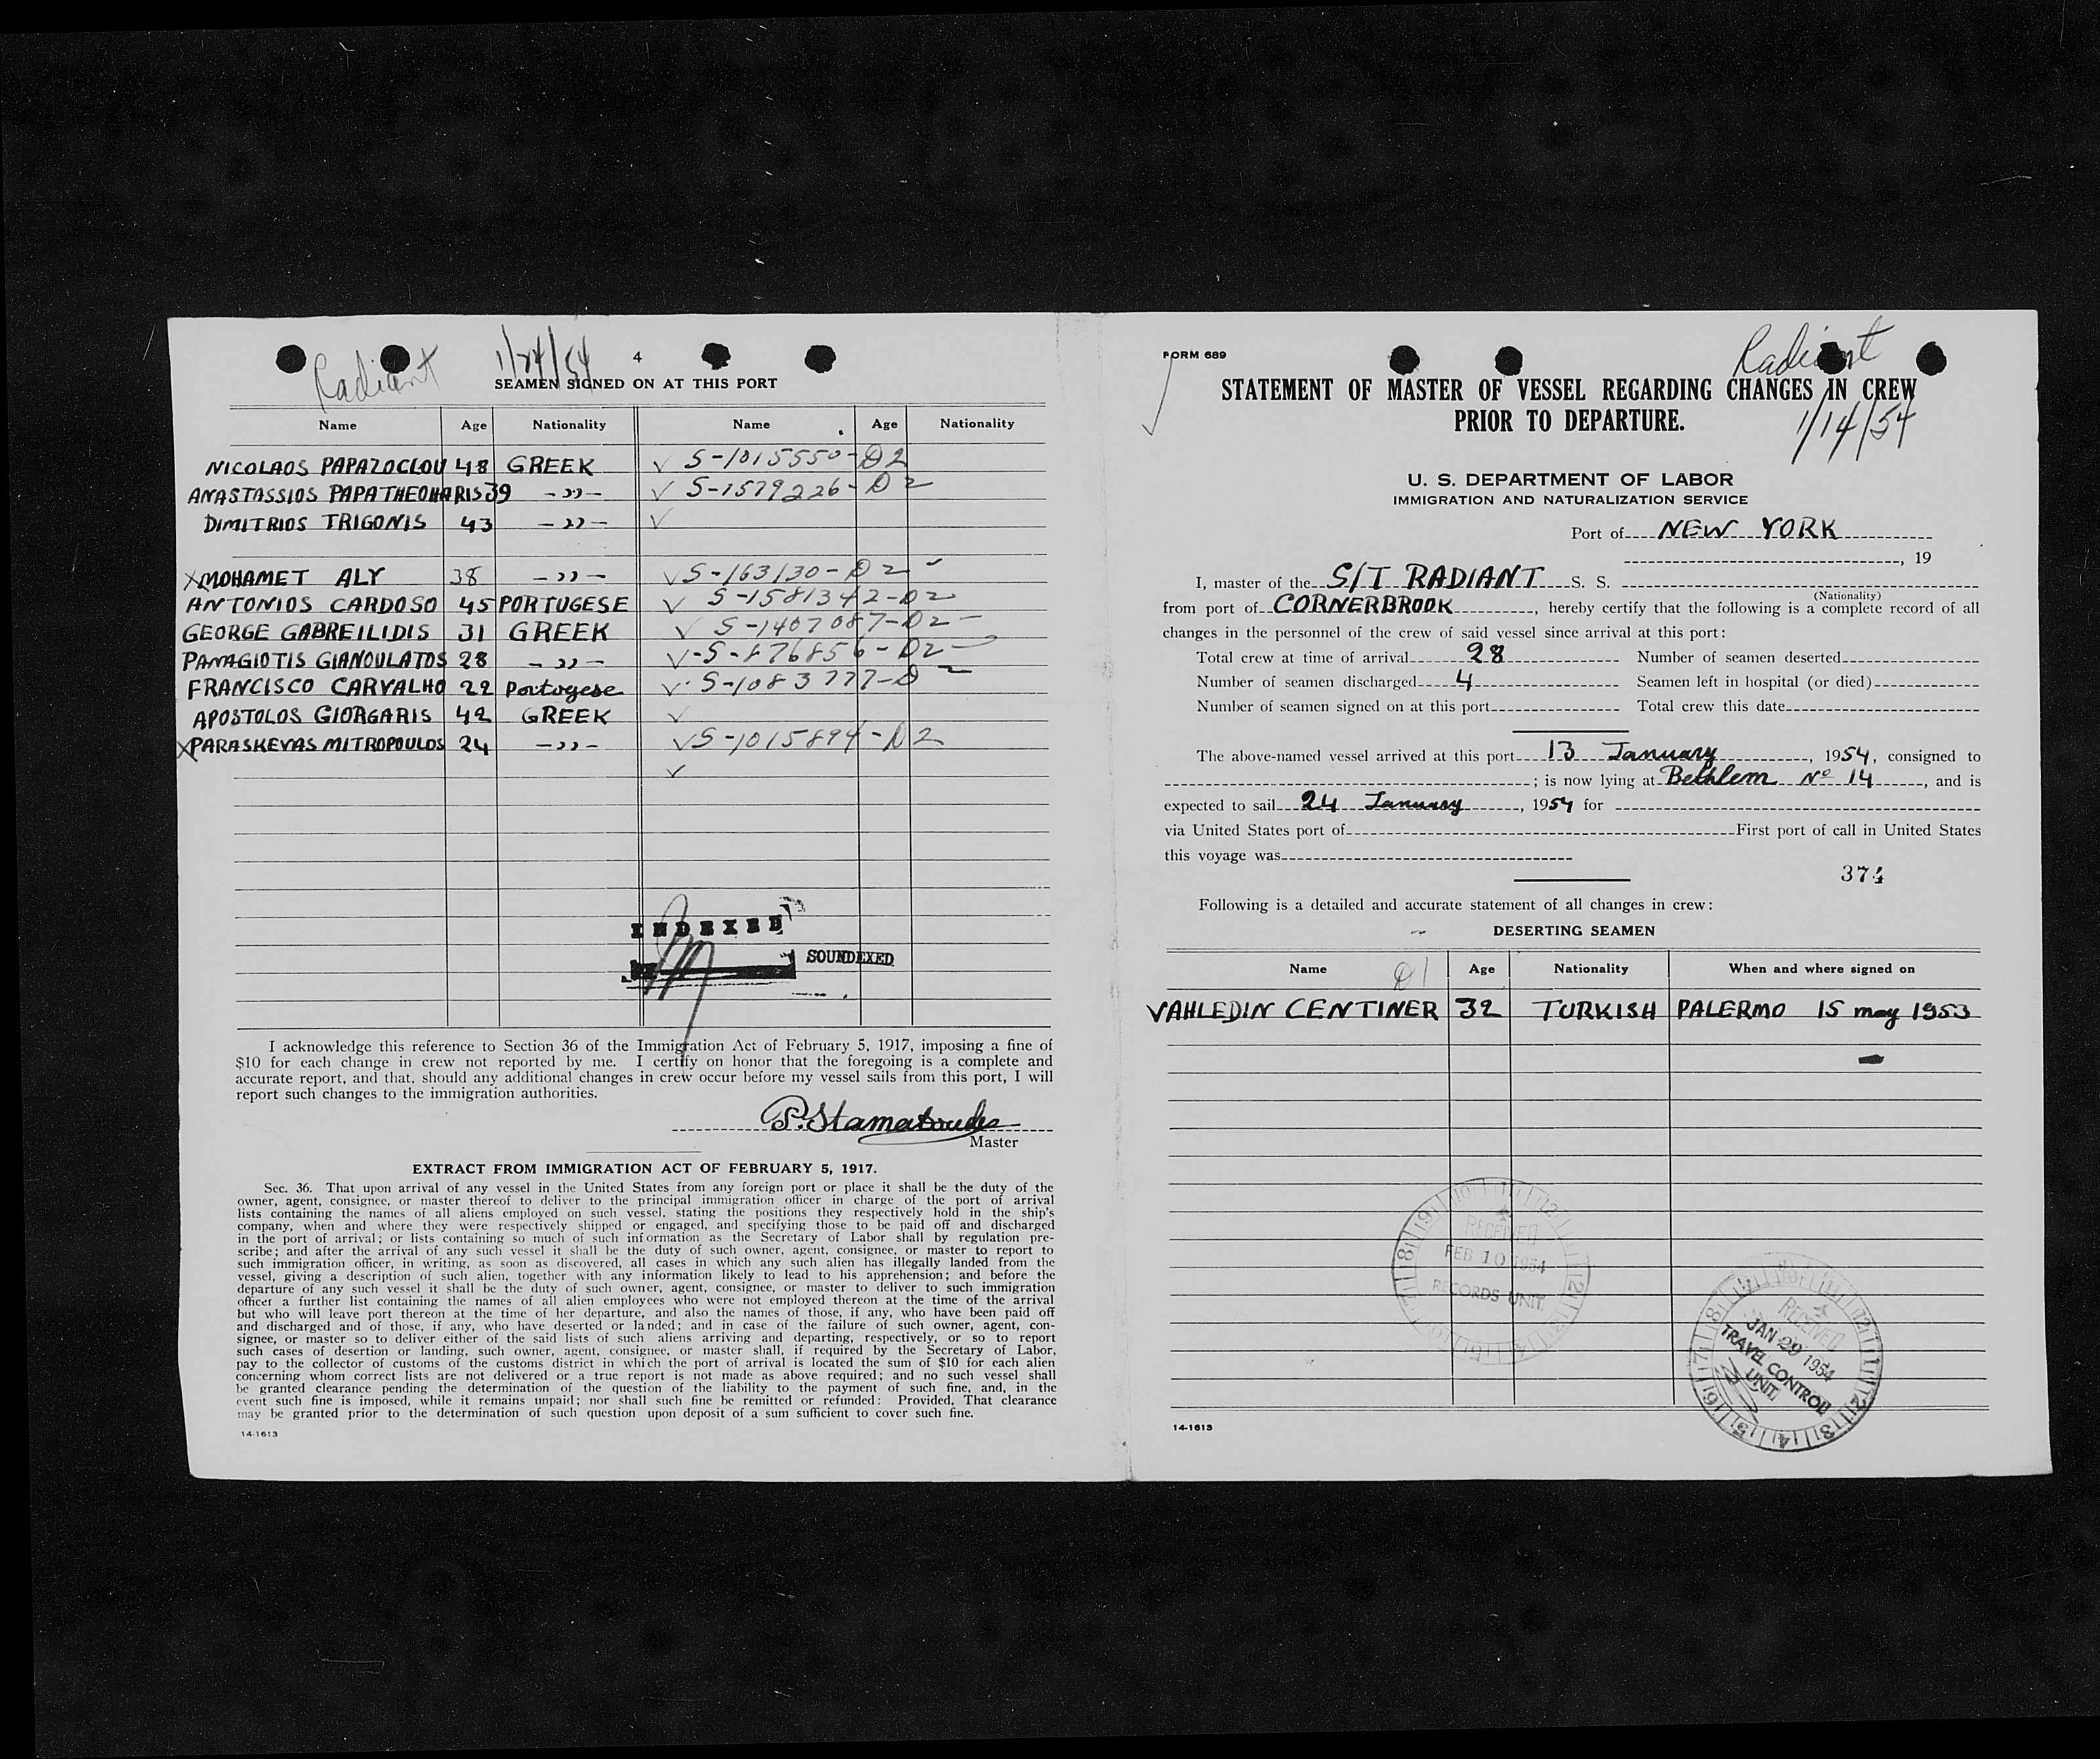 Radiant 1/24/54 4
SEAMEN SIGNED ON AT THIS PORT
Name Age Nationality Name Age Nationality
NICOLAOS PAPAZOCLOU 48 GREEK ✓ S-1015550-D2
ANASTASSIOS PAPATHEOHARIS 39 -〃- ✓ S-1579226-D2
DIMITRIOS TRIGONIS 43 -〃- ✓
X MOHAMET ALY 38 -〃- ✓ S-163130-D2
ANTONIOS CARDOSO 45 PORTUGESE ✓ S-1581342-D2
GEORGE GABREILIDIS 31 GREEK ✓ S-1407087-D2
PANAGIOTIS GIANOULATOS 28 -〃- ✓ -S-876856-D2
FRANCISCO CARVALHO 22 Portogese ✓ S-1083777-D2
APOSTOLOS GIORGARIS 42 GREEK ✓
X PARASKEVAS MITROPOULOS 24 -〃- ✓ S-1015894-D2
✓
INDEXED
SOUNDEXED
I acknowledge this reference to Section 36 of the Immigration Act of February 5, 1917, imposing a fine of
$10 for each change in crew not reported by me. I certify on honor that the foregoing is a complete and
accurate report, and that, should any additional changes in crew occur before my vessel sails from this port, I will
report such changes to the immigration authorities.
Master
EXTRACT FROM IMMIGRATION ACT OF FEBRUARY 5, 1917.
Sec. 36. That upon arrival of any vessel in the United States from any foreign port or place it shall be the duty of the
owner, agent, consignee, or master thereof to deliver to the principal immigration officer in charge of the port of arrival
lists containing the names of all aliens employed on such vessel, stating the positions they respectively hold in the ship's
company, when and where they were respectively shipped or engaged, and specifying those to be paid off and discharged
in the port of arrival; or lists containing so much of such information as the Secretary of Labor shall by regulation pre-
scribe; and after the arrival of any such vessel it shall be the duty of such owner, agent, consignee, or master to report to
such immigration officer, in writing, as soon as discovered, all cases in which any such alien has illegally landed from the
vessel, giving a description of such alien, together with any information likely to lead to his apprehension; and before the
departure of any such vessel it shall be the duty of such owner, agent, consignee, or master to deliver to such immigration
officer a further list containing the names of all alien employees who were not employed thereon at the time of the arrival
but who will leave port thereon at the time of her departure, and also the names of those, if any, who have been paid off
and discharged and of those, if any, who have deserted or landed; and in case of the failure of such owner, agent, con-
signee, or master so to deliver either of the said lists of such aliens arriving and departing, respectively, or so to report
such cases of desertion or landing, such owner, agent, consignee, or master shall, if required by the Secretary of Labor,
pay to the collector of customs of the customs district in which the port of arrival is located the sum of $10 for each alien
concerning whom correct lists are not delivered or a true report is not made as above required; and no such vessel shall
be granted clearance pending the determination of the question of the liability to the payment of such fine, and, in the
event such fine is imposed, while it remains unpaid; nor shall such fine be remitted or refunded: Provided, That clearance
may be granted prior to the determination of such question upon deposit of a sum sufficient to cover such fine.
14-1613
FORM 689 Radiant
STATEMENT OF MASTER OF VESSEL REGARDING CHANGES IN CREW
PRIOR TO DEPARTURE.
1/14/54
U. S. DEPARTMENT OF LABOR
IMMIGRATION AND NATURALIZATION SERVICE
Port of NEW YORK
, 19
I, master of the S/T RADIANT S. S.
(Nationality)
from port of CORNERBROOK, hereby certify that the following is a complete record of all
changes in the personnel of the crew of said vessel since arrival at this port:
Total crew at time of arrival 28 Number of seamen deserted
Number of seamen discharged 4 Seamen left in hospital (or died)
Number of seamen signed on at this port Total crew this date
The above-named vessel arrived at this port 13 January, 1954, consigned to
; is now lying at Bethlem No 14, and is
expected to sail 24 January, 1954 for
via United States port of First port of call in United States
this voyage was
374
Following is a detailed and accurate statement of all changes in crew:
DESERTING SEAMEN
Name D1 Age Nationality When and where signed on
VAHLEDIN CENTINER 32 TURKISH PALERMO 15 may 1953
RECEIVED
FEB 10 1954
RECORDS UNIT
RECEIVED
JAN 29 1954
TRAVEL CONTROL
UNIT
14-1613